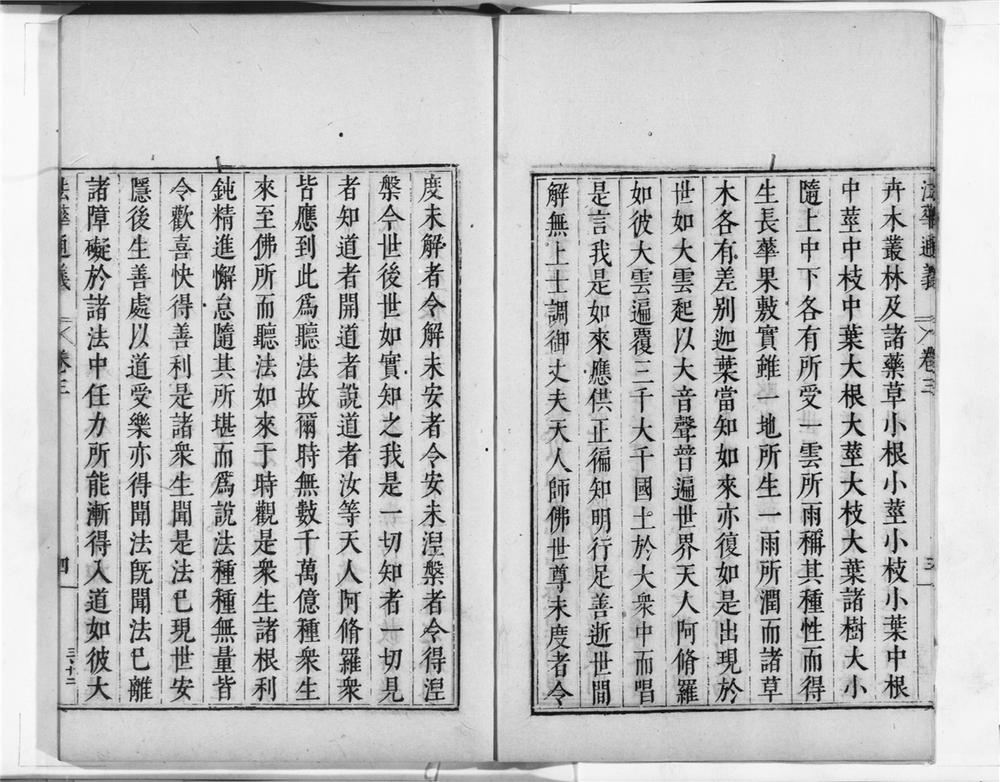 法華通義 卷三 三
卉木叢林及諸藥草小根小莖小枝小葉中根
中莖中枝中葉大根大莖大枝大葉諸樹大小
隨上中下各有所受一雲所雨稱其種性而得
生長華果敷實雖一地所生一雨所潤而諸草
木各有差别迦葉當知如來亦復如是出現於
世如大雲起以大音聲普遍世界天人阿脩羅
如彼大雲遍覆三千大千國土於大衆中而唱
是言我是如來應供正徧知明行足善逝世間
解無上士調御丈夫天人師佛世尊未度者令
度未解者令解未安者令安未湼槃者令得湼
槃今世後世如實知之我是一切知者一切見
者知道者開道者說道者汝等天人阿脩羅衆
皆應到此爲聽法故爾時無數千萬億種衆生
來至佛所而聽法如來于時觀是衆生諸根利
鈍精進懈怠隨其所堪而爲說法種種無量皆
令歡喜快得善利是諸衆生聞是法已現世安
隱後生善處以道受樂亦得聞法旣聞法已離
諸障礙於諸法中任力所能漸得入道如彼大
法華通義 卷三 四 三十二